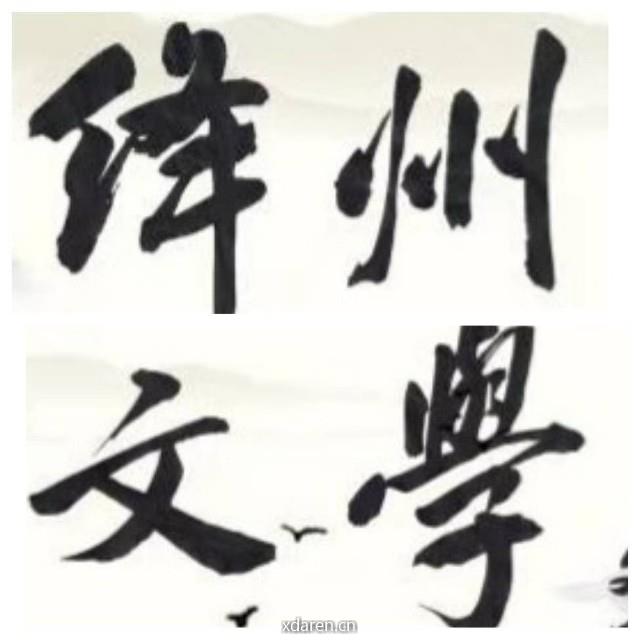 绛州
文學
xdaren.cn